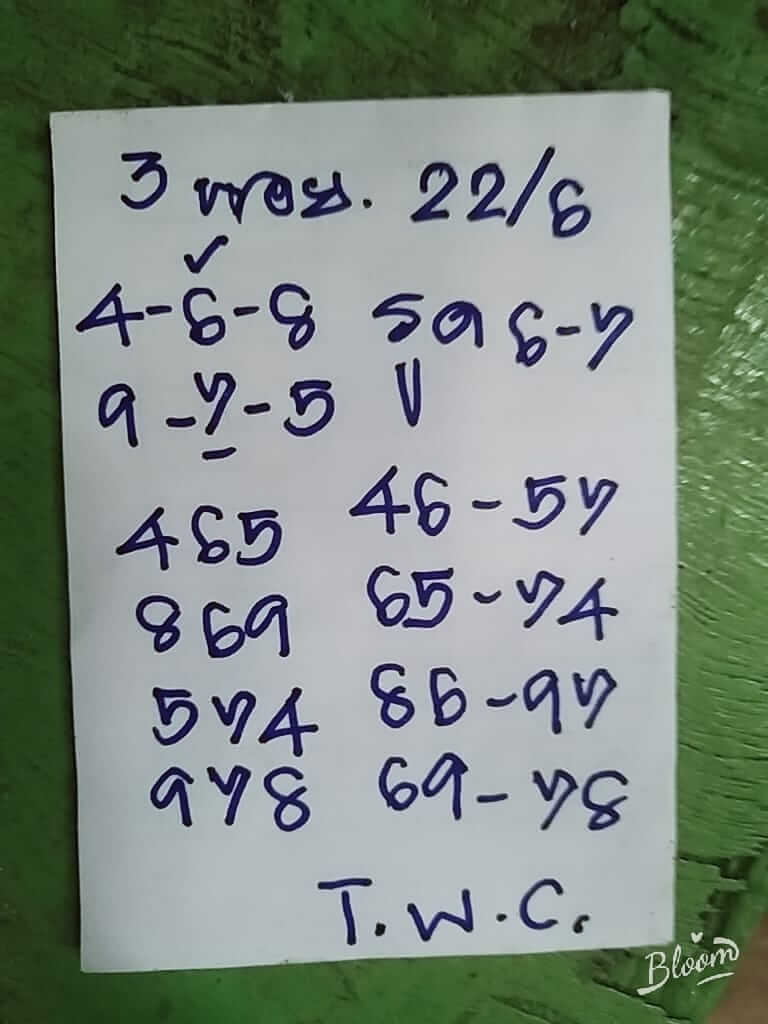 3 พ.ย. 22/6
4-6-8 รด 6-7
9-7-5 ป
465 46-57
869 65-74
574 86-97
978 69-78
T.W.C.
Bloom